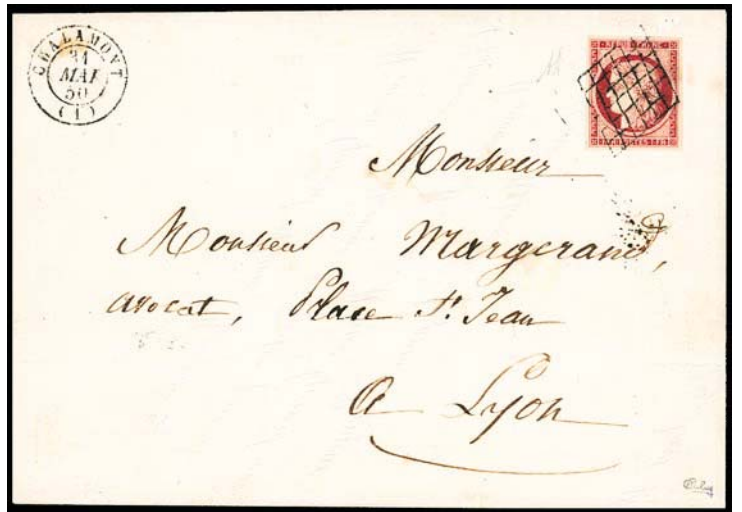 CHALAMONT
31
MAI
50
(1)
REPUB FRANC
Monsieur
Monsieur Margerand,
avocat, Place St. Jean
a Lyon